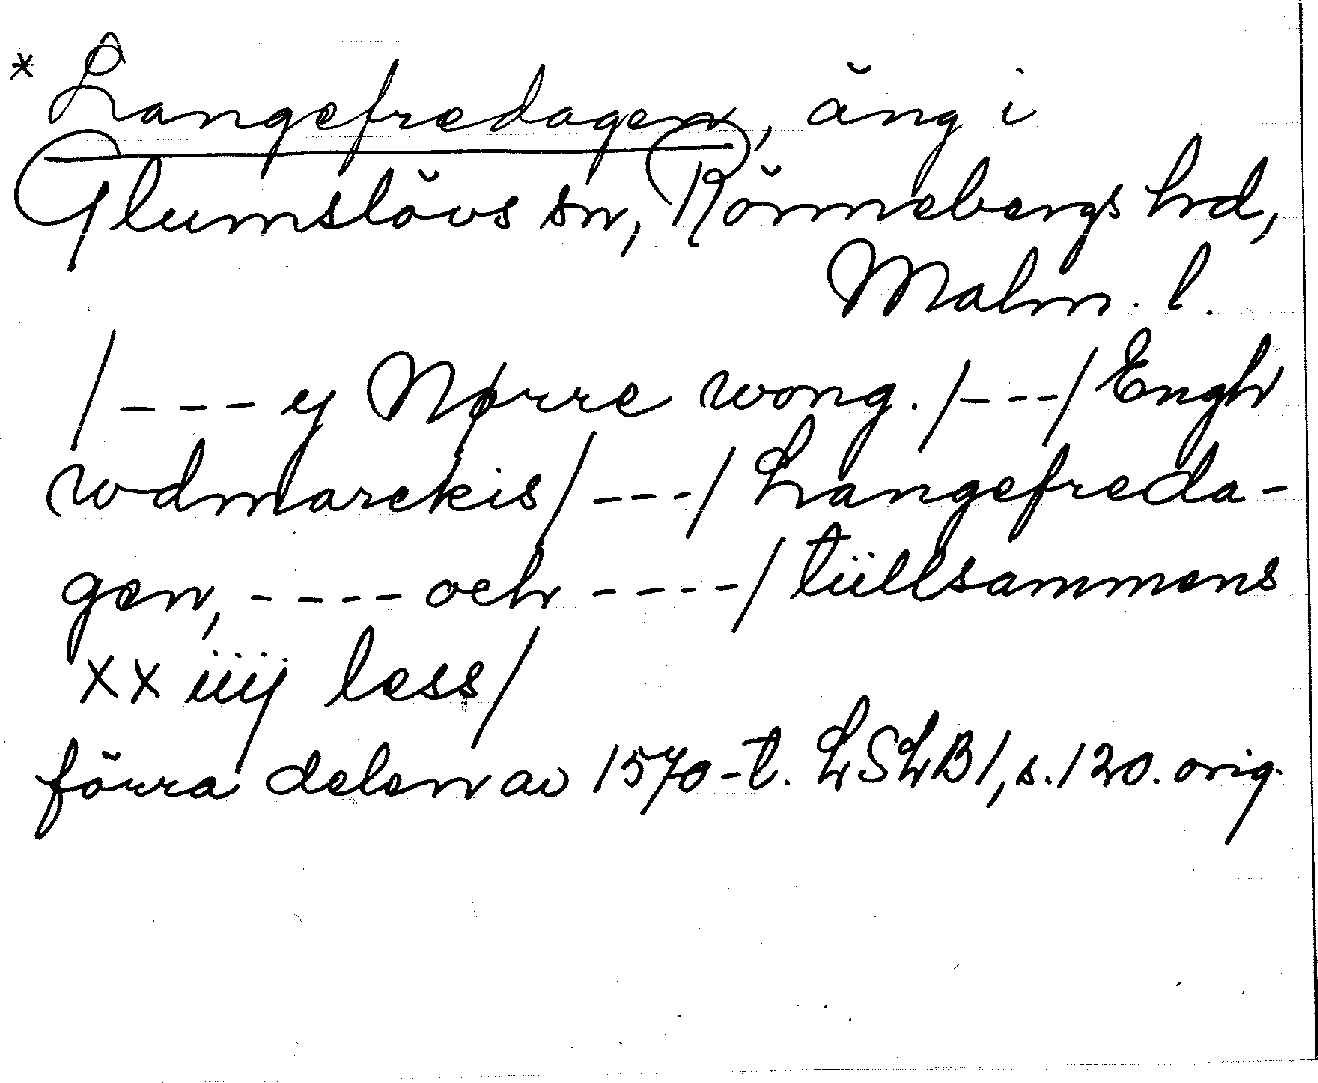 * Langefredagen, äng i
Glumslövs sn, Rönnebergs hrd,
Malm. l.
/---y Nørre wong. /---/ Engh
wdmarckis/---/ Langefreda-
gen, ---- och ----/ tüllsammens
xx iiij less/
förra delen av 1570-t. LSLB1, s. 120. orig.